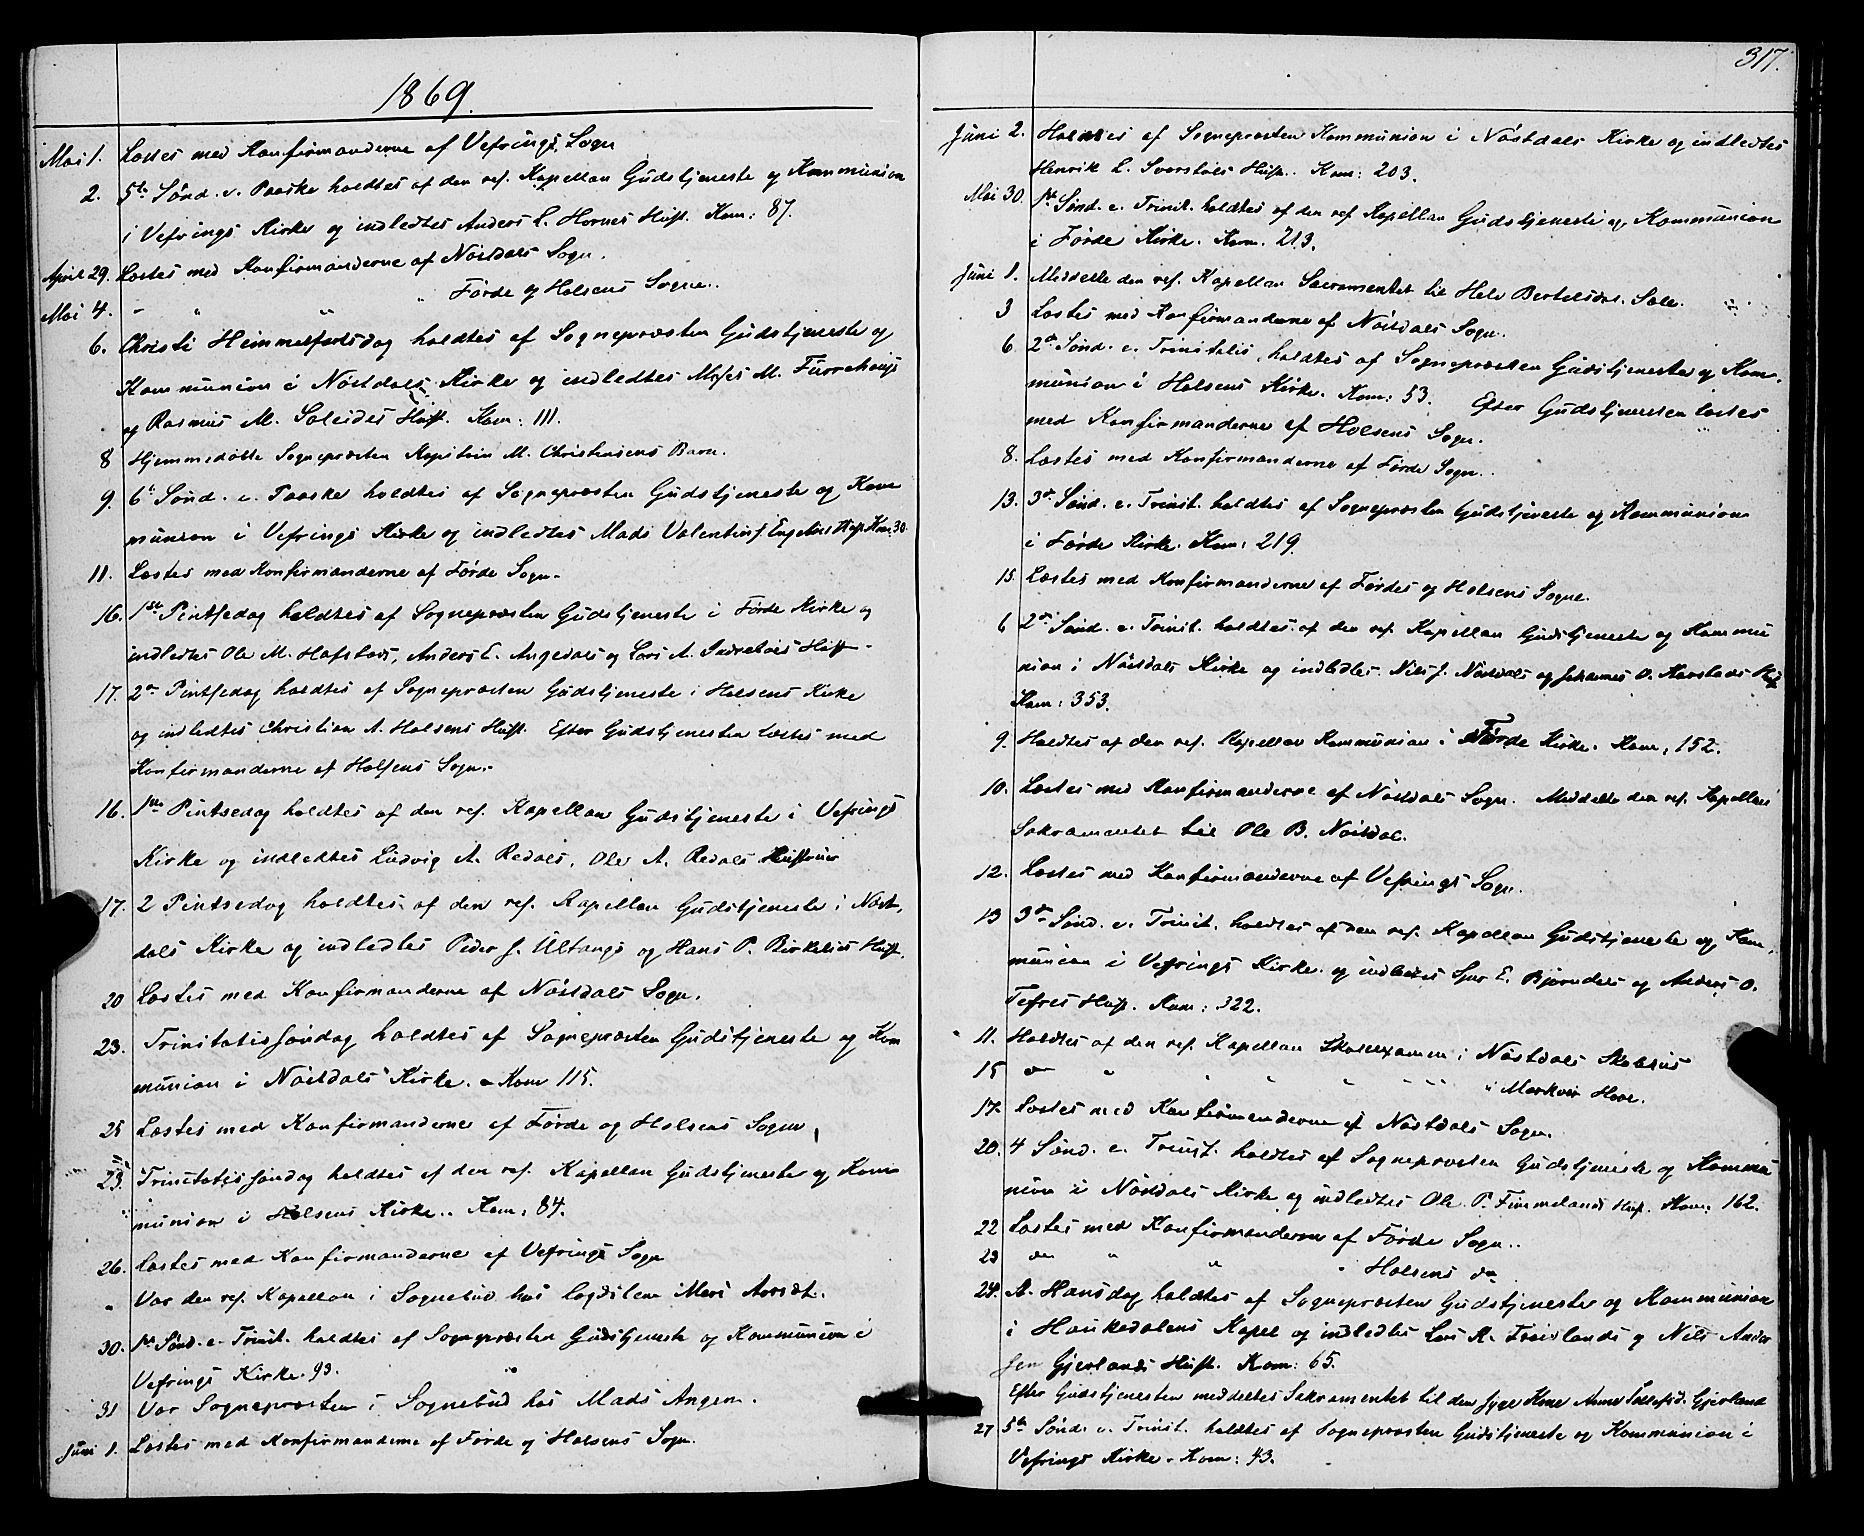 1869.
Mai 1. Læstes med Konfirmanderne af Vefrings Sogn
2. 5te Sønd. e. Paaske holdtes af den res. Kapellan Gudstjeneste og Kommunion
i Vefrings Kirke og indledtes Anders L. Hornes Hust. Kom: 87.
April 29. Læstes med Konfirmanderne af Nøstdals Sogn.
Mai 4. " " " " Førde og Holsens Sogne.
6. Christi Himmelfartsdag holdtes af Sognepræsten Gudstjeneste og
Kommunion i Nøstdals Kirke og indledtes Moses M.
og Rasmus M. Soleides Hust. Kom: 111.
8 Hjemmedøbte Sognepræsten Kapitein M. Christensens Barn.
9. 6te Sønd. e. Paaske holdtes af Sognepræsten Gudstjeneste og Kom
munion i Vefrings Kirke og indledtes Mads Valentin J. Engebøs Hust. Kom. 30.
11. Læstes med Konfirmanderne af Førde Sogn.
16. 1ste Pintsedag holdtes af Sognepræsten Gudstjeneste i Førde Kirke og
indledtes Ole M. Hafstads, Anders E. Angedals og Lars A. Hust.
17. 2den Pintsedag holdtes af Sognepræsten Gudstjeneste i Holsens Kirke
og indledtes Christian A. Holsens Hust. Efter Gudstjenesten læstes med
Konfirmanderne af Holsens Sogn.
16. 1ste Pintsedag holdtes af den res. Kapellan Gudstjeneste i Vefrings
Kirke og indledtes Ludvig A. Redals, Ole A. Redals Hustruer
17. 2 Pintsedag holdtes af den res. Kapellan Gudstjeneste i Nøst,
dals Kirke og indledtes Peder J. Ultangs og Hans P. Hust.
20 Læstes med Konfirmanderne af Nøstdals Sogn.
23. Trinitatissøndag holdtes af Sognepræsten Gudstjeneste og Kom
munion i Nøstdals Kirke. Kom 115.
25 Læstes med Konfirmanderne af Førde og Holsens Sogne,
23. Trinitatissøndag holdtes af den res. Kapellan Gudstjeneste og Kom
munion i Holsens Kirke. Kom: 84.
26. Læstes med Konfirmanderne af Vefrings Sogn
" Var den res. Kapellan i Sognebud hos Logdslem Mari
30. 1ste Sønd. e. Trinit. holdtes af Sognepræsten Gudstjeneste og Kommunion i
Vefrings Kirke. 93.
31 Var Sognepræsten i Sognebud hos Mads Angen.
Juni 1. Læstes med Konfirmanderne af Førde og Holsens Sogn.
317.
Juni 2. Holdtes af Sognepræsten Kommunion i Nøstdals Kirke og indledtes
Henrik L. Hust. Kom: 203.
Mai 30. 1ste Sønd. e. Trinit. holdtes af den res. Kapellan Gudstjeneste og Kommunion
i Førde Kirke. Kom. 213.
Juni 1. Meddelte den res. Kapellan Sacramentet til Hele Bertelsdat. Sale.
3 Læstes med Konfirmanderne af Nøstdals Sogn.
6 2den Sønd. e. Trinitatis, holdtes af Sognepræsten Gudstjeneste og Kom,
munion i Holsens Kirke. Kom: 53. Efter Gudstjenesten læstes
med Konfirmanderne af Holsens Sogn.
8. Læstes med Konfirmanderne af Førde Sogn.
13. 3die Sønd. e. Trinit. holdtes af Sognepræsten Gudstjeneste og Kommunion
i Førde Kirke. Kom: 219.
15. Læstes med Konfirmanderne af Førdes og Holsens Sogne.
6 2den Sønd. e. Trinit. holdtes af den res. Kapellan Gudstjeneste og Kommu
nion i Nøstdals Kirke og indledtes Nils J. Nøstdals og Johannes O. Hust
Kom: 353.
9. Holdtes af den res. Kapellan Kommunion i Førde Kirke. Kom, 152.
10. Læstes med Konfirmanderne af Nøstdals Sogn. Meddelte den res. Kapellan
Sakramentet til Ole B. Nøstdal.
12. Læstes med Konfirmanderne af Vefrings Sogn.
13 3die Sønd. e. Trinit. holdtes af den res. Kapellan Gudstjeneste og Kom,
munion i Vefrings Kirke og indledtes E. og Anders O.
Tefres Hust. Kom: 322.
11. Holdtes af den res. Kapellan Skolexamen i Nøstdals Skolehus
15 do " " " " " " " i
17. Læstes med Konfirmanderne af Nøstdals Sogn.
20. 4 Sønd. e. Trinit. holdtes af Sognepræsten Gudstjeneste og Kommu
nion i Nøstdals Kirke og indledtes Ole P. Fimmelands Hust. Kom: 162.
22 Læstes med Konfirmanderne af Førde Sogn.
23 do " " " Holsens do
24. St. Hansdag holdtes af Sognepræsten Gudstjeneste og Kommunion
i Haukedalens Kapel og indledtes Lars R. og Nils Ander
sen Gjerlands Hust. Kom: 65.
Efter Gudstjenesten meddeltes Sakramentet til den syge Kone Anne Gjerland
27 5te Sønd. e. Trinit. holdtes af Sognepræsten Gudstjeneste og Kommunion i
Vefrings Kirke. Kom: 43.